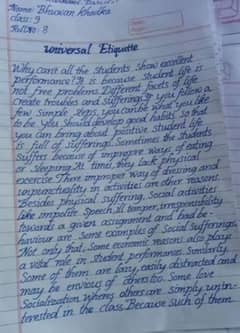 Name: Bhuwan Khadka
class: 9
Roll No: 8
Universal Etiquette
Why can't all the students show excellent
performance? It is because student life is
not free problems. Different facets of life
create troubles and sufferings. If you follow a
few simple steps, you can be what you like
to be. You should develop good habits so that
you can bring about positive student life
is full of sufferings. Sometimes the students
suffers because of improper ways of eating
or sleeping. At times, they lack physical
exercise. There improper way of dressing and
unpunctuality in activities are other reasons.
Besides physical suffering, Social activities
like impolite speech, ill temper, irresponsibility
towards a given assignment and bad be-
haviour are some examples of Social sufferings.
Not only that, Some economic reasons also plays
a vital role in student performance. Similarly,
Some of them are lazy, easily distracted and
may be envious of others too. Some love
Socialization wheres others are simply unin-
terested in the class. Because such of them